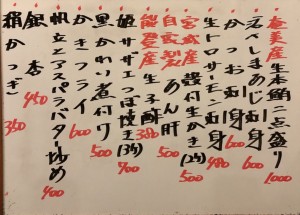 奄美産生本鮪一点盛り 1000
活〆しまあじ刺身 600
かつお刺身 600
生トロサーモン刺身 480
宮城産殻付生かき(2ケ) 500
自家製あん肝 500
能登産生子酢 380
姫サザエつぼ焼き(3ケ) 700
黒かれい煮付け 500
かきフライ 600
帆立とアスパラバター炒め 700
銀杏 450
栃尾かつぎ 350